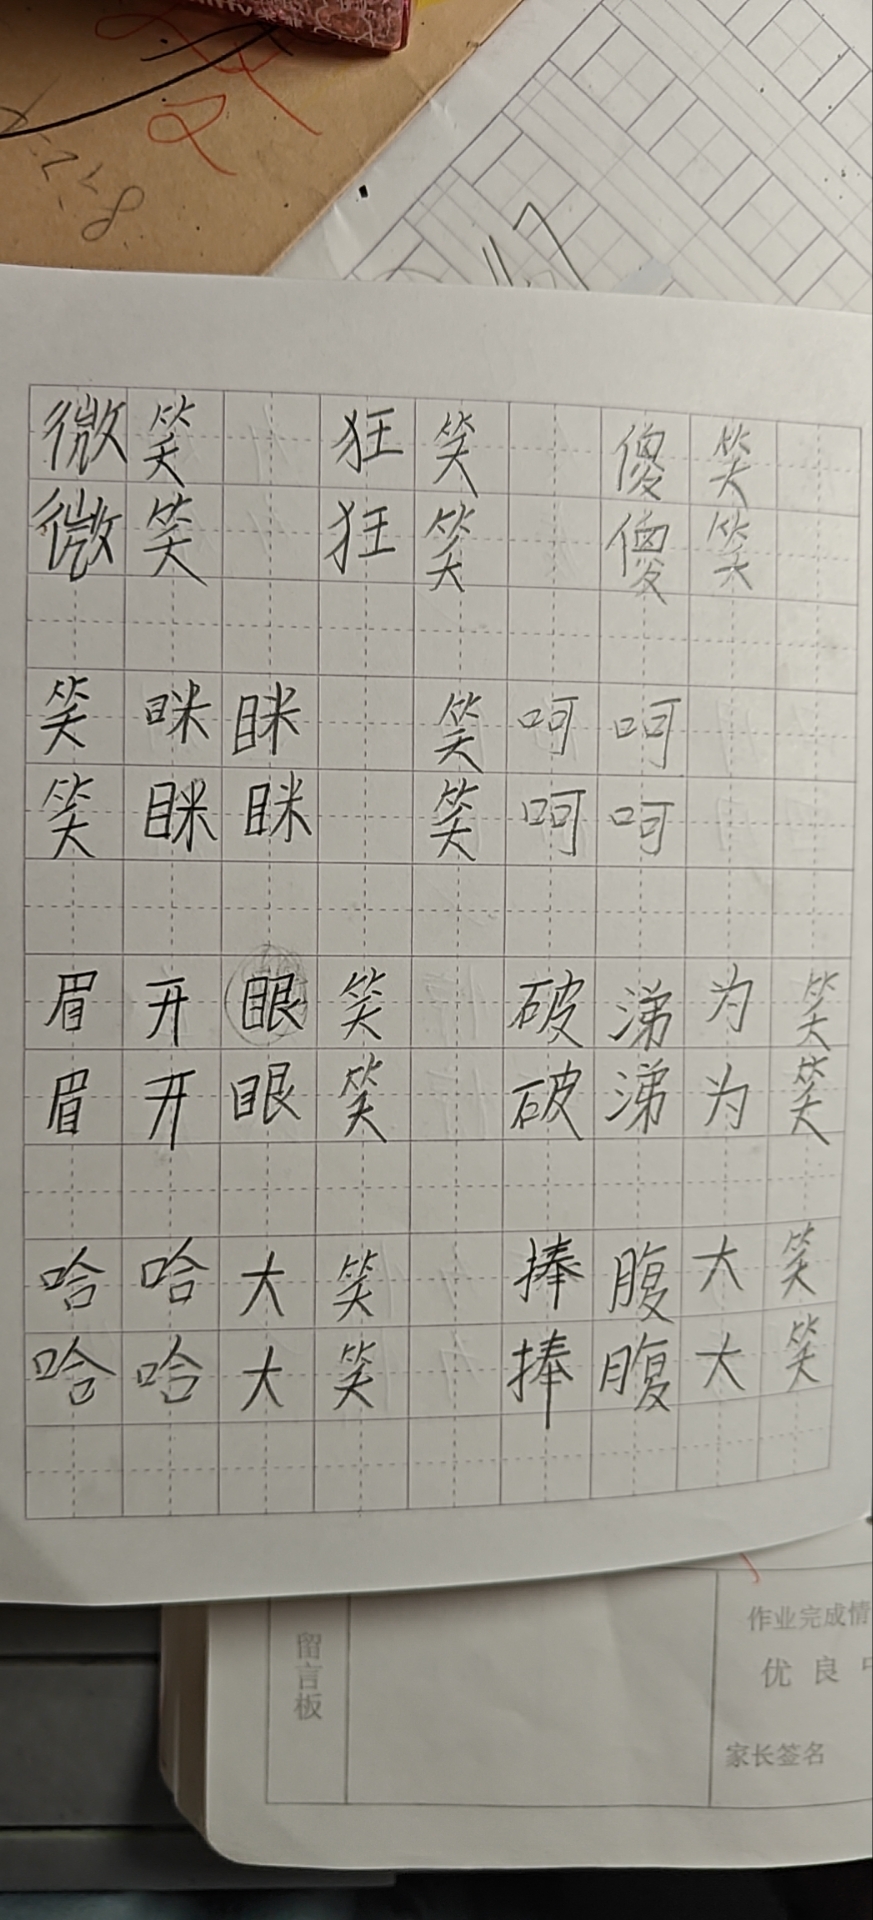 微笑 狂笑 傻笑
微笑 狂笑 傻笑
笑眯眯 笑呵呵
笑眯眯 笑呵呵
眉开眼笑 破涕为笑
眉开眼笑 破涕为笑
哈哈大笑 捧腹大笑
哈哈大笑 捧腹大笑
留言板
作业完成情
优 良
家长签名